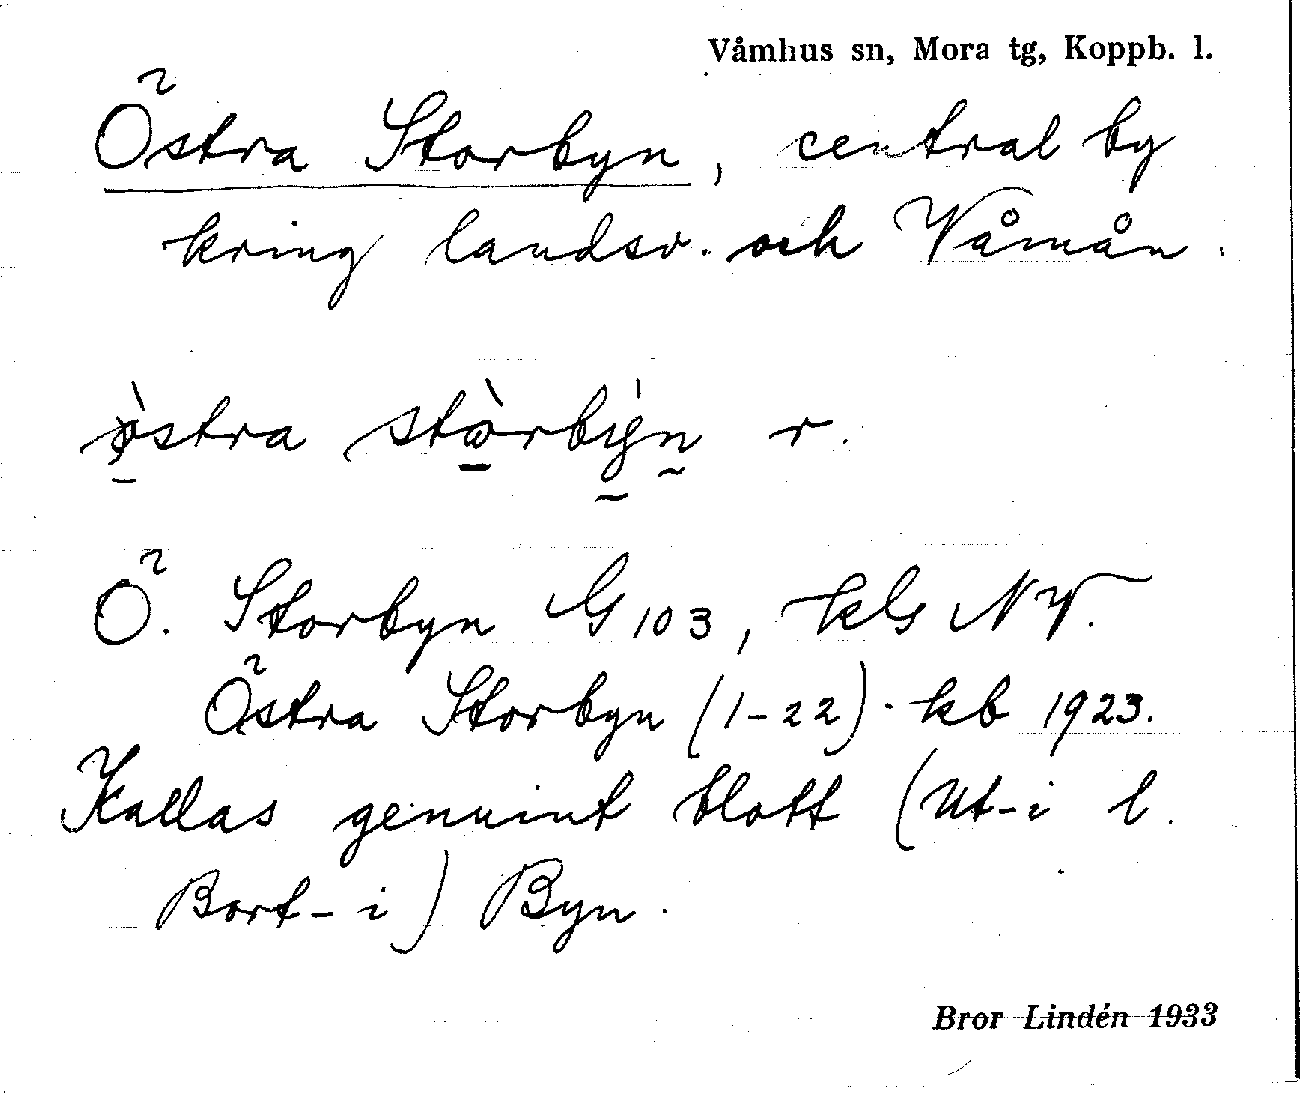 Våmhus sn, Mora tg, Koppb. l.
Östra Storbyn, central by
kring landsv. och Våmån.
östra storbyn r.
Ö. Storbyn G 103, kls NV.
Östra Storbyn (1-22). kb 1923.
Kallas genuint blott (Ut-i l.
Bort-i) Byn.
Bror Lindén 1933